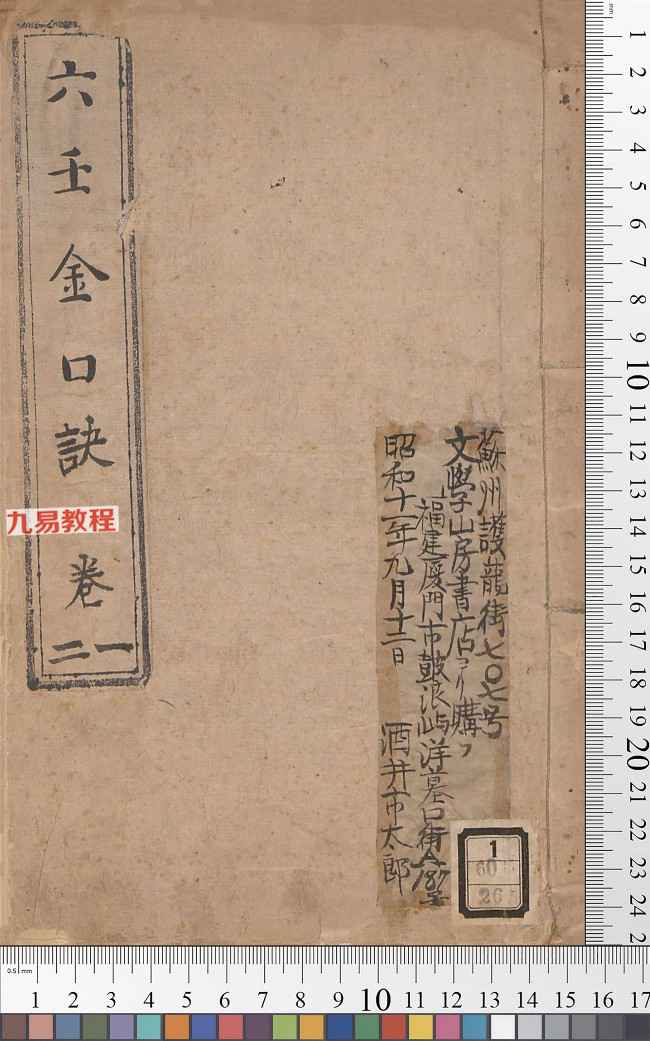 六壬金口訣 卷
一二
九易教程
蘇州護龍街七〇七号
文學山房書店ヨリ購フ
福建厦門市鼓浪屿洋墓口街
187号
昭和十一年九月十二日 酒井市太郎
1
60
26
0.5 mm
mm
1 2 3 4 5 6 7 8 9 10 11 12 13 14 15 16 17 18 19 20 21 22 23 24 2
1 2 3 4 5 6 7 8 9 10 11 12 13 14 15 16 17